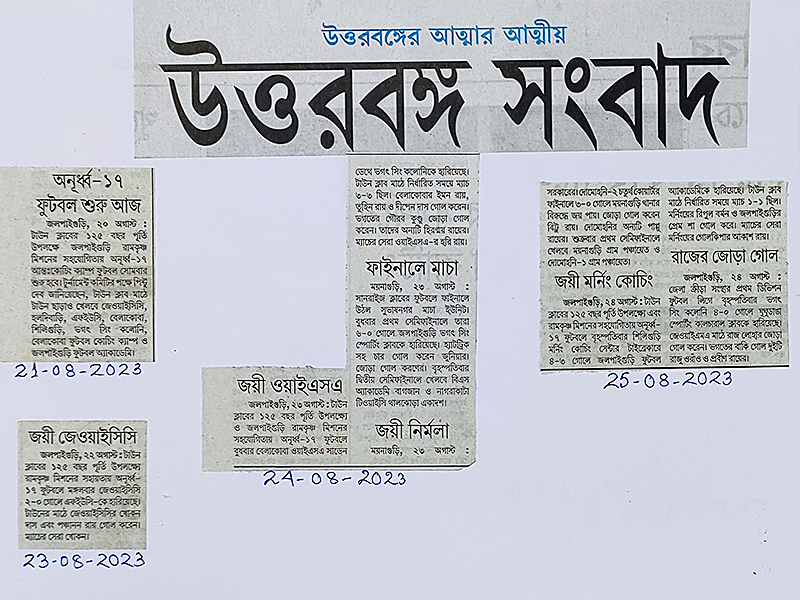 উত্তরবঙ্গের আত্মার আত্মীয়
উত্তরবঙ্গ সংবাদ
অনূর্ধ্ব-১৭
ফুটবল শুরু আজ
জলপাইগুড়ি, ২০ অগাস্ট :
টাউন ক্লাবের ১২৫ বছর পূর্তি
উপলক্ষে জলপাইগুড়ি রামকৃষ্ণ
মিশনের সহযোগিতায় অনূর্ধ্ব-১৭
আন্তঃকোচিং ক্যাম্প ফুটবল সোমবার
শুরু হবে। টুর্নামেন্ট কমিটির পক্ষে পিন্টু
দেব জানিয়েছেন, টাউন ক্লাব মাঠে
টাউন ছাড়াও খেলবে জেওয়াইসিসি,
হলদিবাড়ি, এফইউসি, বেলাকোবা,
শিলিগুড়ি, ভগৎ সিং কলোনি,
বেলাকোবা ফুটবল কোচিং ক্যাম্প ও
জলপাইগুড়ি ফুটবল অ্যাকাডেমি।
21-08-2023
জয়ী জেওয়াইসিসি
জলপাইগুড়ি, ২২ অগাস্ট : টাউন
ক্লাবের ১২৫ বছর পূর্তি উপলক্ষ্যে
রামকৃষ্ণ মিশনের সহায়তায় অনূর্ধ্ব-
১৭ ফুটবলে মঙ্গলবার জেওয়াইসিসি
২-০ গোলে এফইউসি-কে হারিয়েছে।
টাউনের মাঠে জেওয়াইসিসির খোকন
দাস এবং পঞ্চানন রায় গোল করেন।
ম্যাচের সেরা খোকন।
23-08-2023
জয়ী ওয়াইএসএ
জলপাইগুড়ি, ২৩ অগাস্ট : টাউন
ক্লাবের ১২৫ বছর পূর্তি উপলক্ষ্যে
ও জলপাইগুড়ি রামকৃষ্ণ মিশনের
সহযোগিতায় অনূর্ধ্ব-১৭ ফুটবলে
বুধবার বেলাকোবা ওয়াইএসএ সাডেন
ডেথে ভগৎ সিং কলোনিকে হারিয়েছে।
টাউন ক্লাব মাঠে নির্ধারিত সময়ে ম্যাচ
৩-৩ ছিল। বেলাকোবার ইমন রায়,
তুহিন রায় ও দীপেন দাস গোল করেন।
ভগতের গৌরব কুণ্ডু জোড়া গোল
করেন। তাদের অন্যটি হিরন্ময় রায়ের।
ম্যাচের সেরা ওয়াইএসএ-র হরি রায়।
ফাইনালে মাচা
ময়নাগুড়ি, ২৩ অগাস্ট :
সানরাইজ ক্লাবের ফুটবলে ফাইনালে
উঠল সুভাষনগর মাচা ইউনিট।
বুধবার প্রথম সেমিফাইনালে তারা
৬-০ গোলে জলপাইগুড়ি ভগৎ সিং
স্পোর্টিং ক্লাবকে হারিয়েছে। হ্যাটট্রিক
সহ চার গোল করেন জুনিয়র।
জোড়া গোল করণের। বৃহস্পতিবার
দ্বিতীয় সেমিফাইনালে খেলবে বিএস
অ্যাকাডেমি বাগজান ও নাগরাকাটা
টিওয়াইসি থালঝোড়া একাদশ।
জয়ী নির্মলা
ময়নাগুড়ি, ২৩ অগাস্ট :
24-08-2023
সরকারের। দোমোহনি-২ চতুর্থ কোয়ার্টার
ফাইনালে ৩-০ গোলে ময়নাগুড়ি থানার
বিরুদ্ধে জয় পায়। জোড়া গোল করেন
বিট্টু রায়। দোমোহনির অন্যটি পাপ্পু
রায়ের। শুক্রবার প্রথম সেমিফাইনালে
খেলবে ময়নাগুড়ি গ্রাম পঞ্চায়েত ও
দোমোহনি-১ গ্রাম পঞ্চায়েত।
জয়ী মর্নিং কোচিং
জলপাইগুড়ি, ২৪ অগাস্ট : টাউন
ক্লাবের ১২৫ বছর পূর্তি উপলক্ষ্যে এবং
রামকৃষ্ণ মিশনের সহযোগিতায় অনূর্ধ্ব-
১৭ ফুটবলে বৃহস্পতিবার শিলিগুড়ি
মর্নিং কোচিং সেন্টার টাইব্রেকারে
৪-৩ গোলে জলপাইগুড়ি ফুটবল
অ্যাকাডেমিকে হারিয়েছে। টাউন ক্লাব
মাঠে নির্ধারিত সময় ম্যাচ ১-১ ছিল।
মর্নিংয়ের রিপুল বর্মন ও জলপাইগুড়ির
প্রেম শা গোল করে। ম্যাচের সেরা
মর্নিংয়ের গোলকিপার আকাশ রায়।
রাজের জোড়া গোল
জলপাইগুড়ি, ২৪ অগাস্ট :
জেলা ক্রীড়া সংস্থার প্রথম ডিভিশন
ফুটবল লিগে বৃহস্পতিবার ভগৎ
সিং কলোনি ৪-০ গোলে ঘুঘুডাঙ্গা
স্পোর্টিং কালচারাল ক্লাবকে হারিয়েছে।
জেওয়াইএমএ মাঠে রাজ লোহার জোড়া
গোল করেন। ভগতের বাকি গোল দুইটি
রাজু ওরাওঁ ও প্রবীণ রায়ের।
25-08-2023